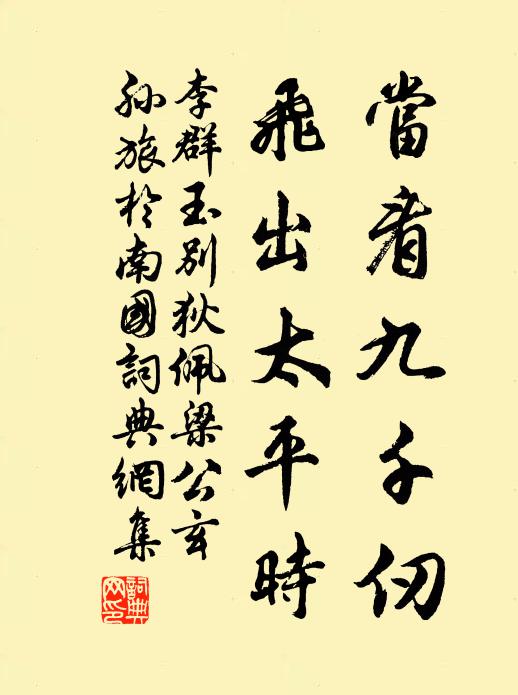 當看九千仞
飛出太平時
李群玉別狄佩梁公玄
孫旅於南國詞典網集
詞典
网印